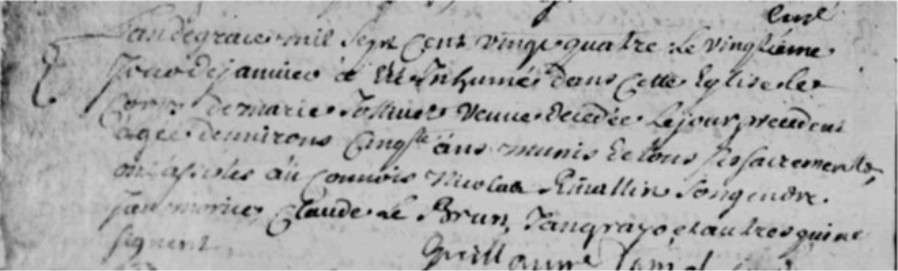 Curé
L'an de grace mil sept cent vingt quatre le vingtième
jour de janvier a été Inhumée dans cette Eglise le
corps de marie veuve decedée le jour precedent
agée denvirons Cinq.te ans munis de tous ses sacrements,
ont assistés au Convois Nicolas son gendre
Claude Le Brun, et autres qui ne
signent
Guillaume